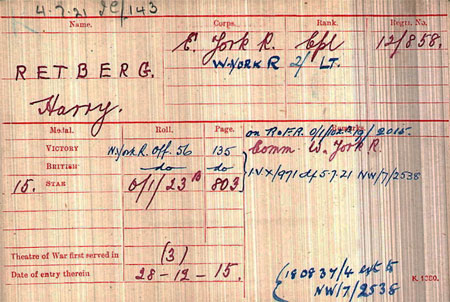 4-7-21 JC/143
Corps. Rank. Regtl. No.
E. York R. Cpl 12/858.
W. York R 2/Lt.
RETBERG.
Harry.
Medal. Roll. Page.
on R.O.F.R.
VICTORY W. York R. Off. 56 135 Comm. W. York R.
BRITISH do do
IVX/971 d/ 5.7.21 NW/7/2538
15. STAR O/1/23 B 803
Theatre of War first served in (3)
Date of entry therein 28-12-15.
(180837/4 ext to
NW/7/2538
K. 1380.